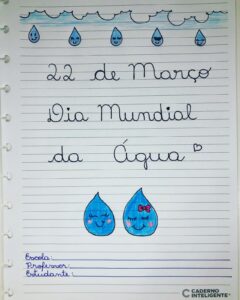 22 de Março
Dia Mundial
da Água
Escola:
Professor:
Estudante:
CADERNO
INTELIGENTE